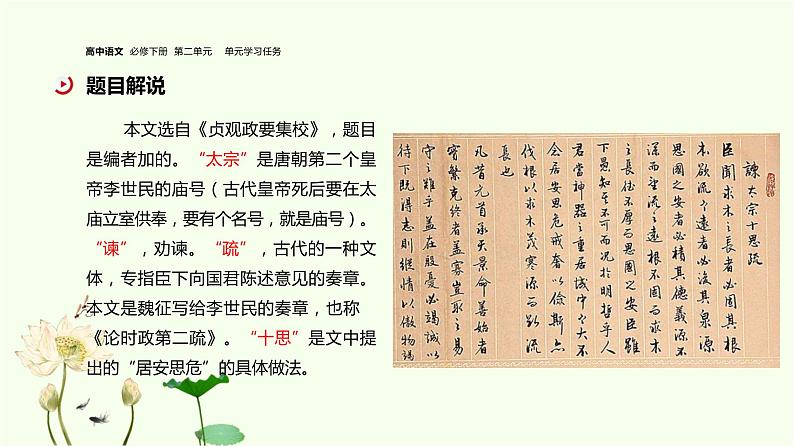 高中语文 必修下册 第二单元 单元学习任务
题目解说
本文选自《贞观政要集校》，题目
是编者加的。“太宗”是唐朝第二个皇
帝李世民的庙号（古代皇帝死后要在太
庙立室供奉，要有个名号，就是庙号）。
“谏”，劝谏。“疏”，古代的一种文
体，专指臣下向国君陈述意见的奏章。
本文是魏征写给李世民的奏章，也称
《论时政第二疏》。“十思”是文中提
出的“居安思危”的具体做法。
諫太宗十思疏
臣聞求木之長者必固其根
本欲流之遠者必浚其泉源
思國之安者必積其德義源不
深而望流之遠根不固而求木
之長德不厚而思國之安臣雖
下愚知其不可而況於明哲乎人
君當神器之重居域中之大不
念居安思危戒奢以儉斯亦
伐根以求木茂塞源而欲流
長也
凡昔元首承天景命善始者
實繁克終者蓋寡豈取之易
守之難乎蓋在殷憂必竭誠以
待下既得志則縱情以傲物竭